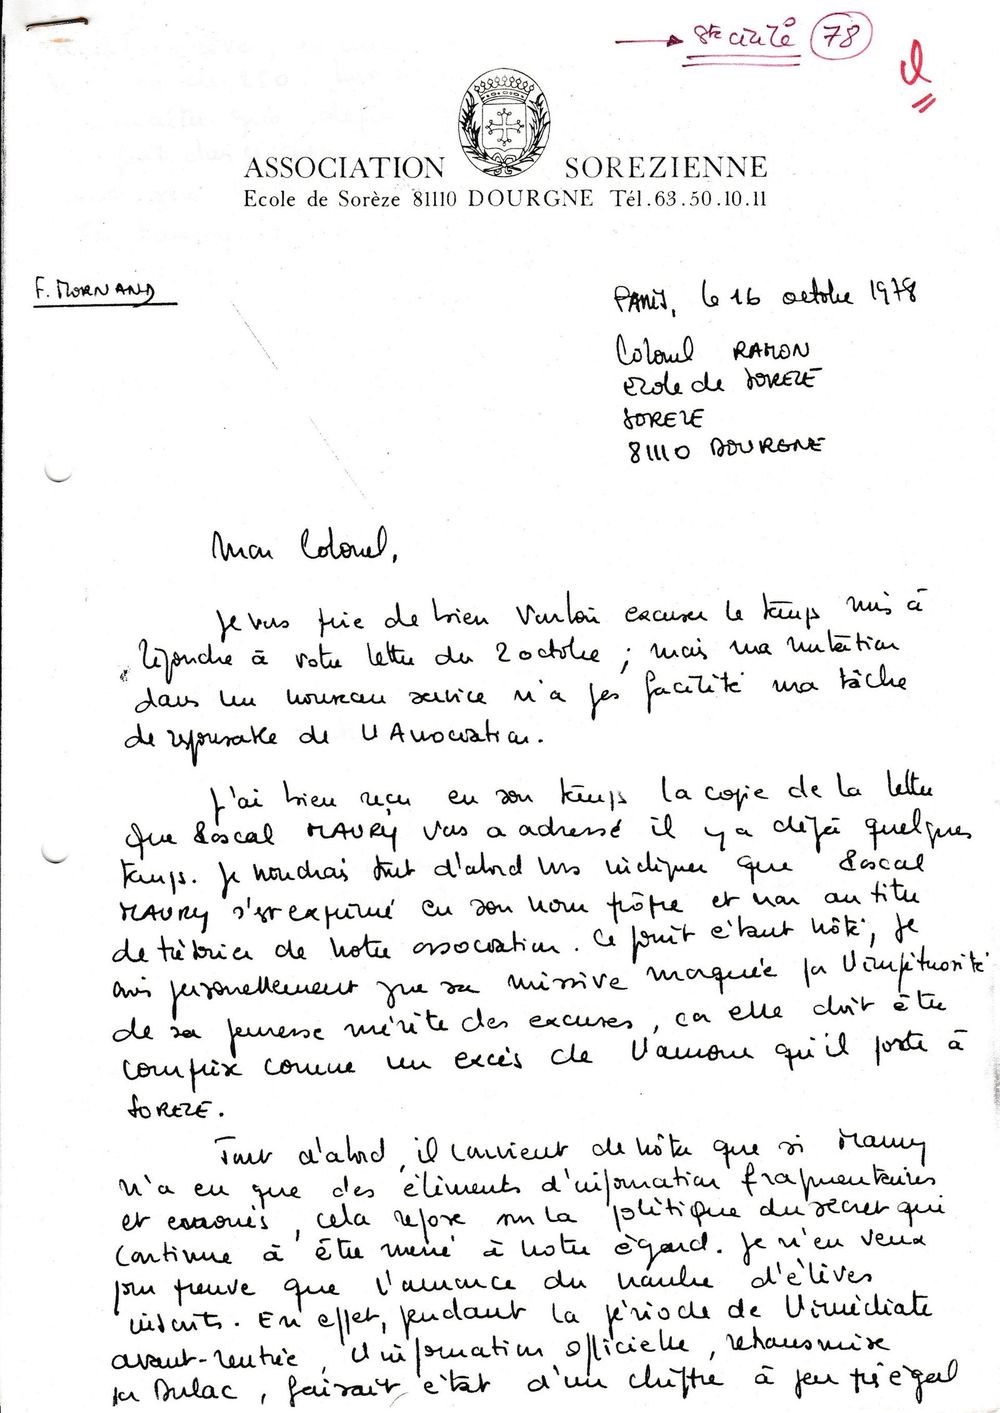 → Sté civile 78
ASSOCIATION SOREZIENNE
Ecole de Sorèze 81110 DOURGNE Tél.63.50.10.11
F. MORNAND
PARIS, le 16 octobre 1978
Colonel RAMON
Ecole de SOREZE
SOREZE
81110 DOURGNE
Mon Colonel,
Je vous prie de bien vouloir excuser le temps mis à
répondre à votre lettre du 2 octobre ; mais ma mutation
dans un nouveau service n'a pas facilité ma tâche
de responsable de l'Association.
J'ai bien reçu en son temps la copie de la lettre
que Pascal MAURY vous a adressé il y a déjà quelques
temps. Je voudrais tout d'abord vous indiquer que Pascal
MAURY s'est exprimé en son nom propre et non au titre
de trésorier de notre association. Ce point étant noté, je
suis personnellement que sa missive marquée par l'impétuosité
de sa jeunesse mérite des excuses, car elle doit être
comprise comme un excès de l'amour qu'il porte à
SOREZE.
Tout d'abord, il convient de noter que si Maury
n'a eu que des éléments d'information fragmentaires
et erronés, cela repose sur la politique du secret qui
continue à être mené à notre égard. Je n'en veux
pour preuve que l'annonce du nombre d'élèves
inscrits. En effet, pendant la période de l'immédiate
avant-rentrée, l'information officielle, retransmise
par Dulac, faisait état d'un chiffre à peu près égal